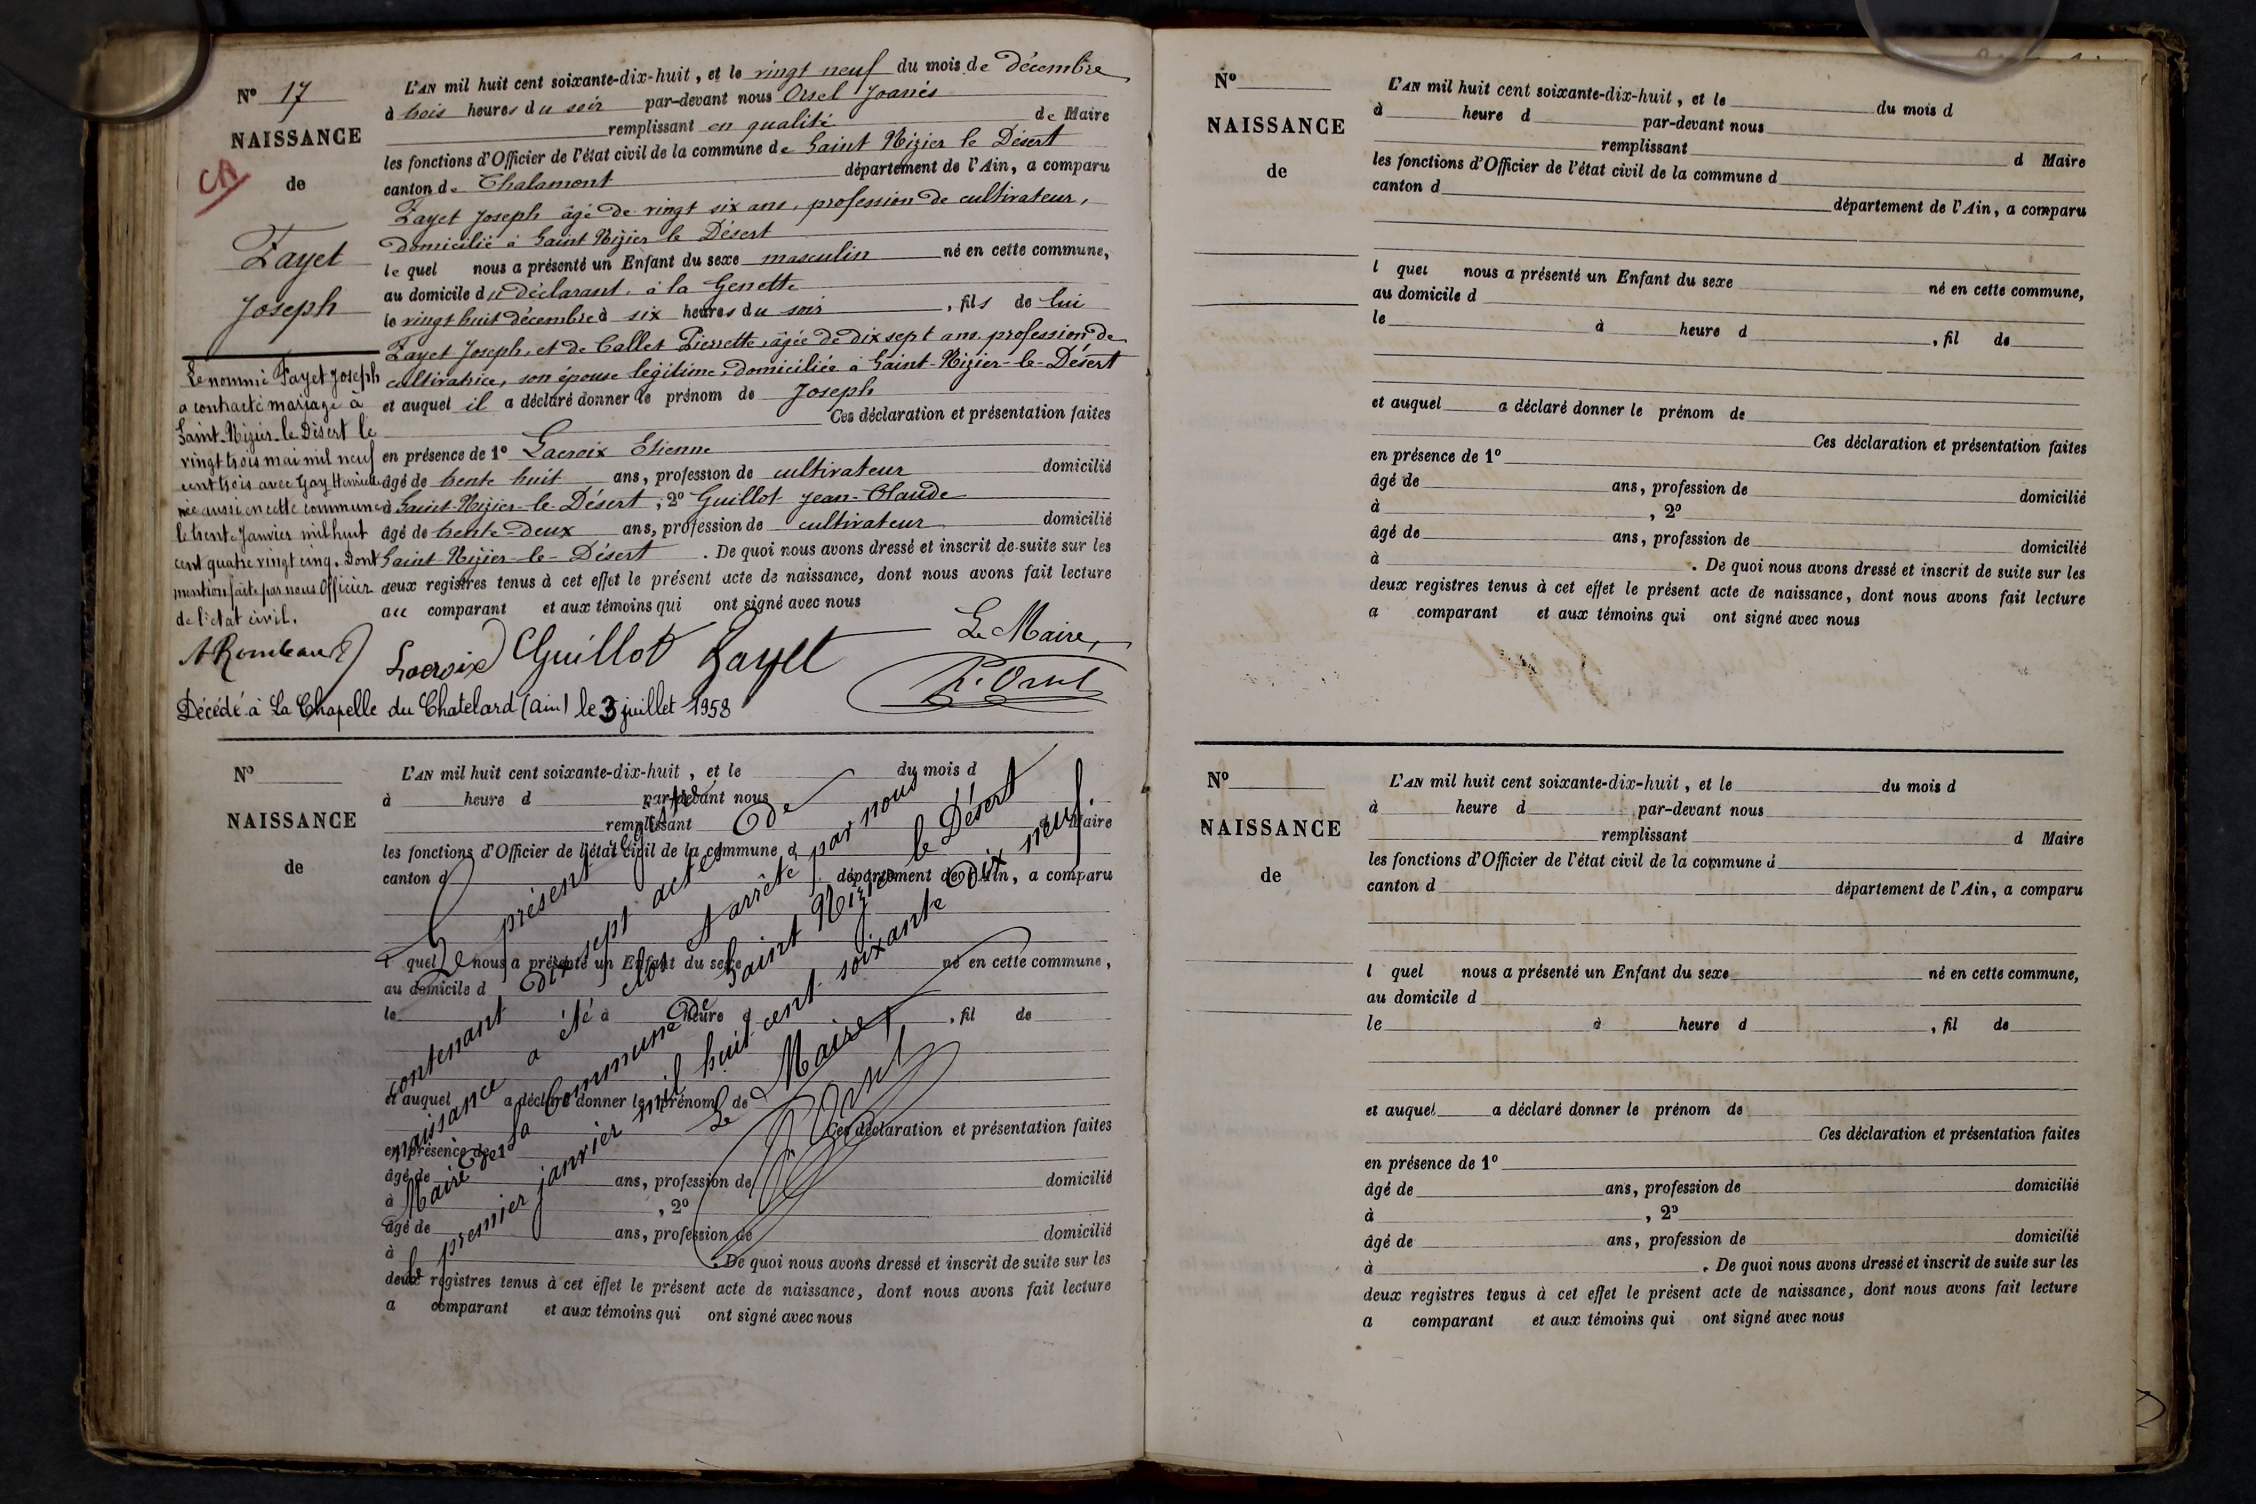 N° 17
NAISSANCE
de
Fayet
Joseph
L'AN mil huit cent soixante-dix-huit, et le vingt neuf du mois de décembre
à trois heures du soir par-devant nous Orsel Joanès
remplissant en qualité de Maire
les fonctions d'Officier de l'état civil de la commune de Saint Nizier le Désert
canton de Chalamont département de l'Ain, a comparu
Fayet Joseph âgé de vingt six ans, profession de cultivateur,
domicilié à Saint Nizier le Désert
le quel nous a présenté un Enfant du sexe masculin né en cette commune,
au domicile du déclarant, à la Genette
le vingt huit décembre à six heures du soir, fils de lui
Fayet Joseph, et de Callet Pierrette, âgée de dix sept ans, profession de
cultivatrice, son épouse légitime, domiciliée à Saint-Nizier-le-Désert
et auquel il a déclaré donner le prénom de Joseph
Ces déclaration et présentation faites
en présence de 1° Lacroix Etienne
âgé de trente huit ans, profession de cultivateur domicilié
à Saint-Nizier-le-Désert, 2° Guillot Jean-Claude
âgé de trente-deux ans, profession de cultivateur domicilié
Saint-Nizier-le-Désert. De quoi nous avons dressé et inscrit de suite sur les
deux registres tenus à cet effet le présent acte de naissance, dont nous avons fait lecture
au comparant et aux témoins qui ont signé avec nous
Le Maire,
Lacroix Guillot Fayet
Le nommé Fayet Joseph
a contracté mariage à
Saint-Nizier-le-Désert le
vingt trois mai mil neuf
cent trois avec Gay Henriette
née aussi en cette commune
le trente Janvier mil huit
cent quatre vingt cinq. Dont
mention faite par nous Officier
de l'état civil.
Décédé à La Chapelle du Chatelard (Ain) le 3 juillet 1958
N°
NAISSANCE
de
L'AN mil huit cent soixante-dix-huit, et le du mois d
à heure d par-devant nous
remplissant d Maire
les fonctions d'Officier de l'état civil de la commune d
canton d département de l'Ain, a comparu
l quel nous a présenté un Enfant du sexe né en cette commune,
au domicile d
le à heure d, fil de
et auquel a déclaré donner le prénom de
Ces déclaration et présentation faites
en présence de 1°
âgé de ans, profession de domicilié
à , 2°
âgé de ans, profession de domicilié
à . De quoi nous avons dressé et inscrit de suite sur les
deux registres tenus à cet effet le présent acte de naissance, dont nous avons fait lecture
a comparant et aux témoins qui ont signé avec nous
Le présent registre
contenant dix sept actes de
naissance a été clos et arrêté par nous
Maire de la Commune de Saint Nizier le Désert
le premier janvier mil huit cent soixante dix neuf.
Le Maire,
N°
NAISSANCE
de
L'AN mil huit cent soixante-dix-huit, et le du mois d
à heure d par-devant nous
remplissant d Maire
les fonctions d'Officier de l'état civil de la commune d
canton d département de l'Ain, a comparu
l quel nous a présenté un Enfant du sexe né en cette commune,
au domicile d
le à heure d, fil de
et auquel a déclaré donner le prénom de
Ces déclaration et présentation faites
en présence de 1°
âgé de ans, profession de domicilié
à , 2°
âgé de ans, profession de domicilié
à . De quoi nous avons dressé et inscrit de suite sur les
deux registres tenus à cet effet le présent acte de naissance, dont nous avons fait lecture
a comparant et aux témoins qui ont signé avec nous
N°
NAISSANCE
de
L'AN mil huit cent soixante-dix-huit, et le du mois d
à heure d par-devant nous
remplissant d Maire
les fonctions d'Officier de l'état civil de la commune d
canton d département de l'Ain, a comparu
l quel nous a présenté un Enfant du sexe né en cette commune,
au domicile d
le à heure d, fil de
et auquel a déclaré donner le prénom de
Ces déclaration et présentation faites
en présence de 1°
âgé de ans, profession de domicilié
à , 2°
âgé de ans, profession de domicilié
à . De quoi nous avons dressé et inscrit de suite sur les
deux registres tenus à cet effet le présent acte de naissance, dont nous avons fait lecture
a comparant et aux témoins qui ont signé avec nous